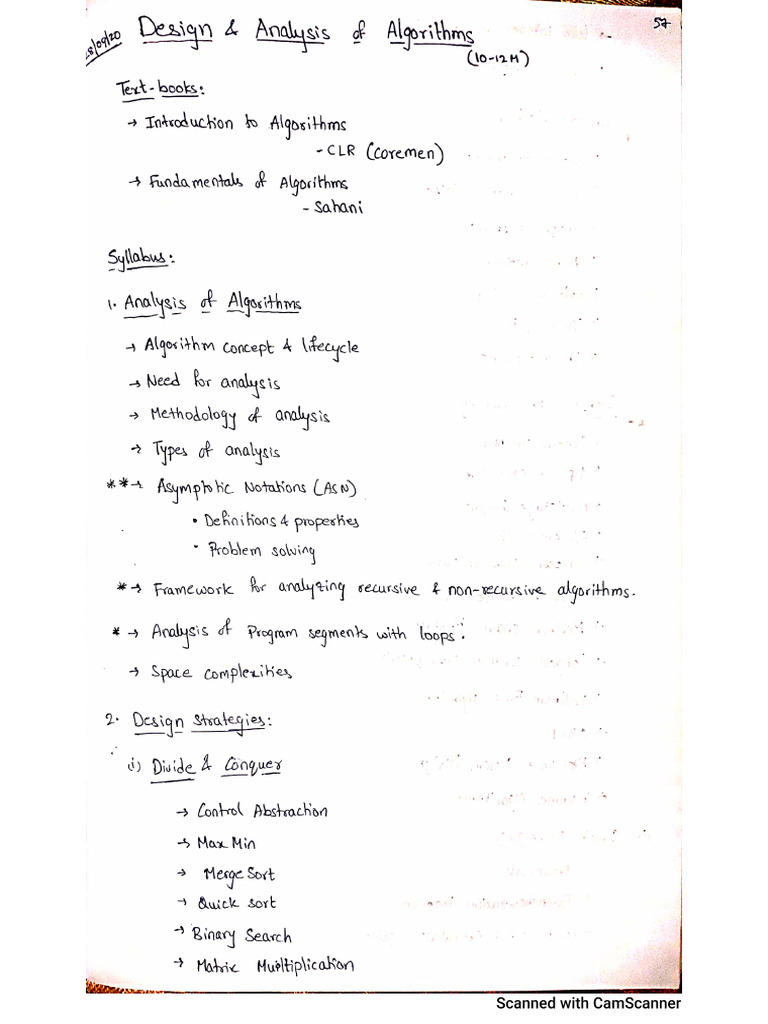 28/09/20 Design & Analysis of Algorithms 57
(10-12M)
Text-books:
→ Introduction to Algorithms
- CLR (coremen)
→ Fundamentals of Algorithms
- Sahani
Syllabus:
1. Analysis of Algorithms
→ Algorithm concept & lifecycle
→ Need for analysis
→ Methodology of analysis
→ Types of analysis
**→ Asymptotic Notations (ASN)
• Definitions & properties
• Problem solving
*→ Framework for analyzing recursive & non-recursive algorithms.
*→ Analysis of Program segments with loops.
→ Space complexities
2. Design Strategies:
(i) Divide & Conquer
→ Control Abstraction
→ Max Min
→ Merge Sort
→ Quick sort
→ Binary Search
→ Matrix Multiplication
Scanned with CamScanner